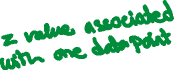 z value associated
with one data point